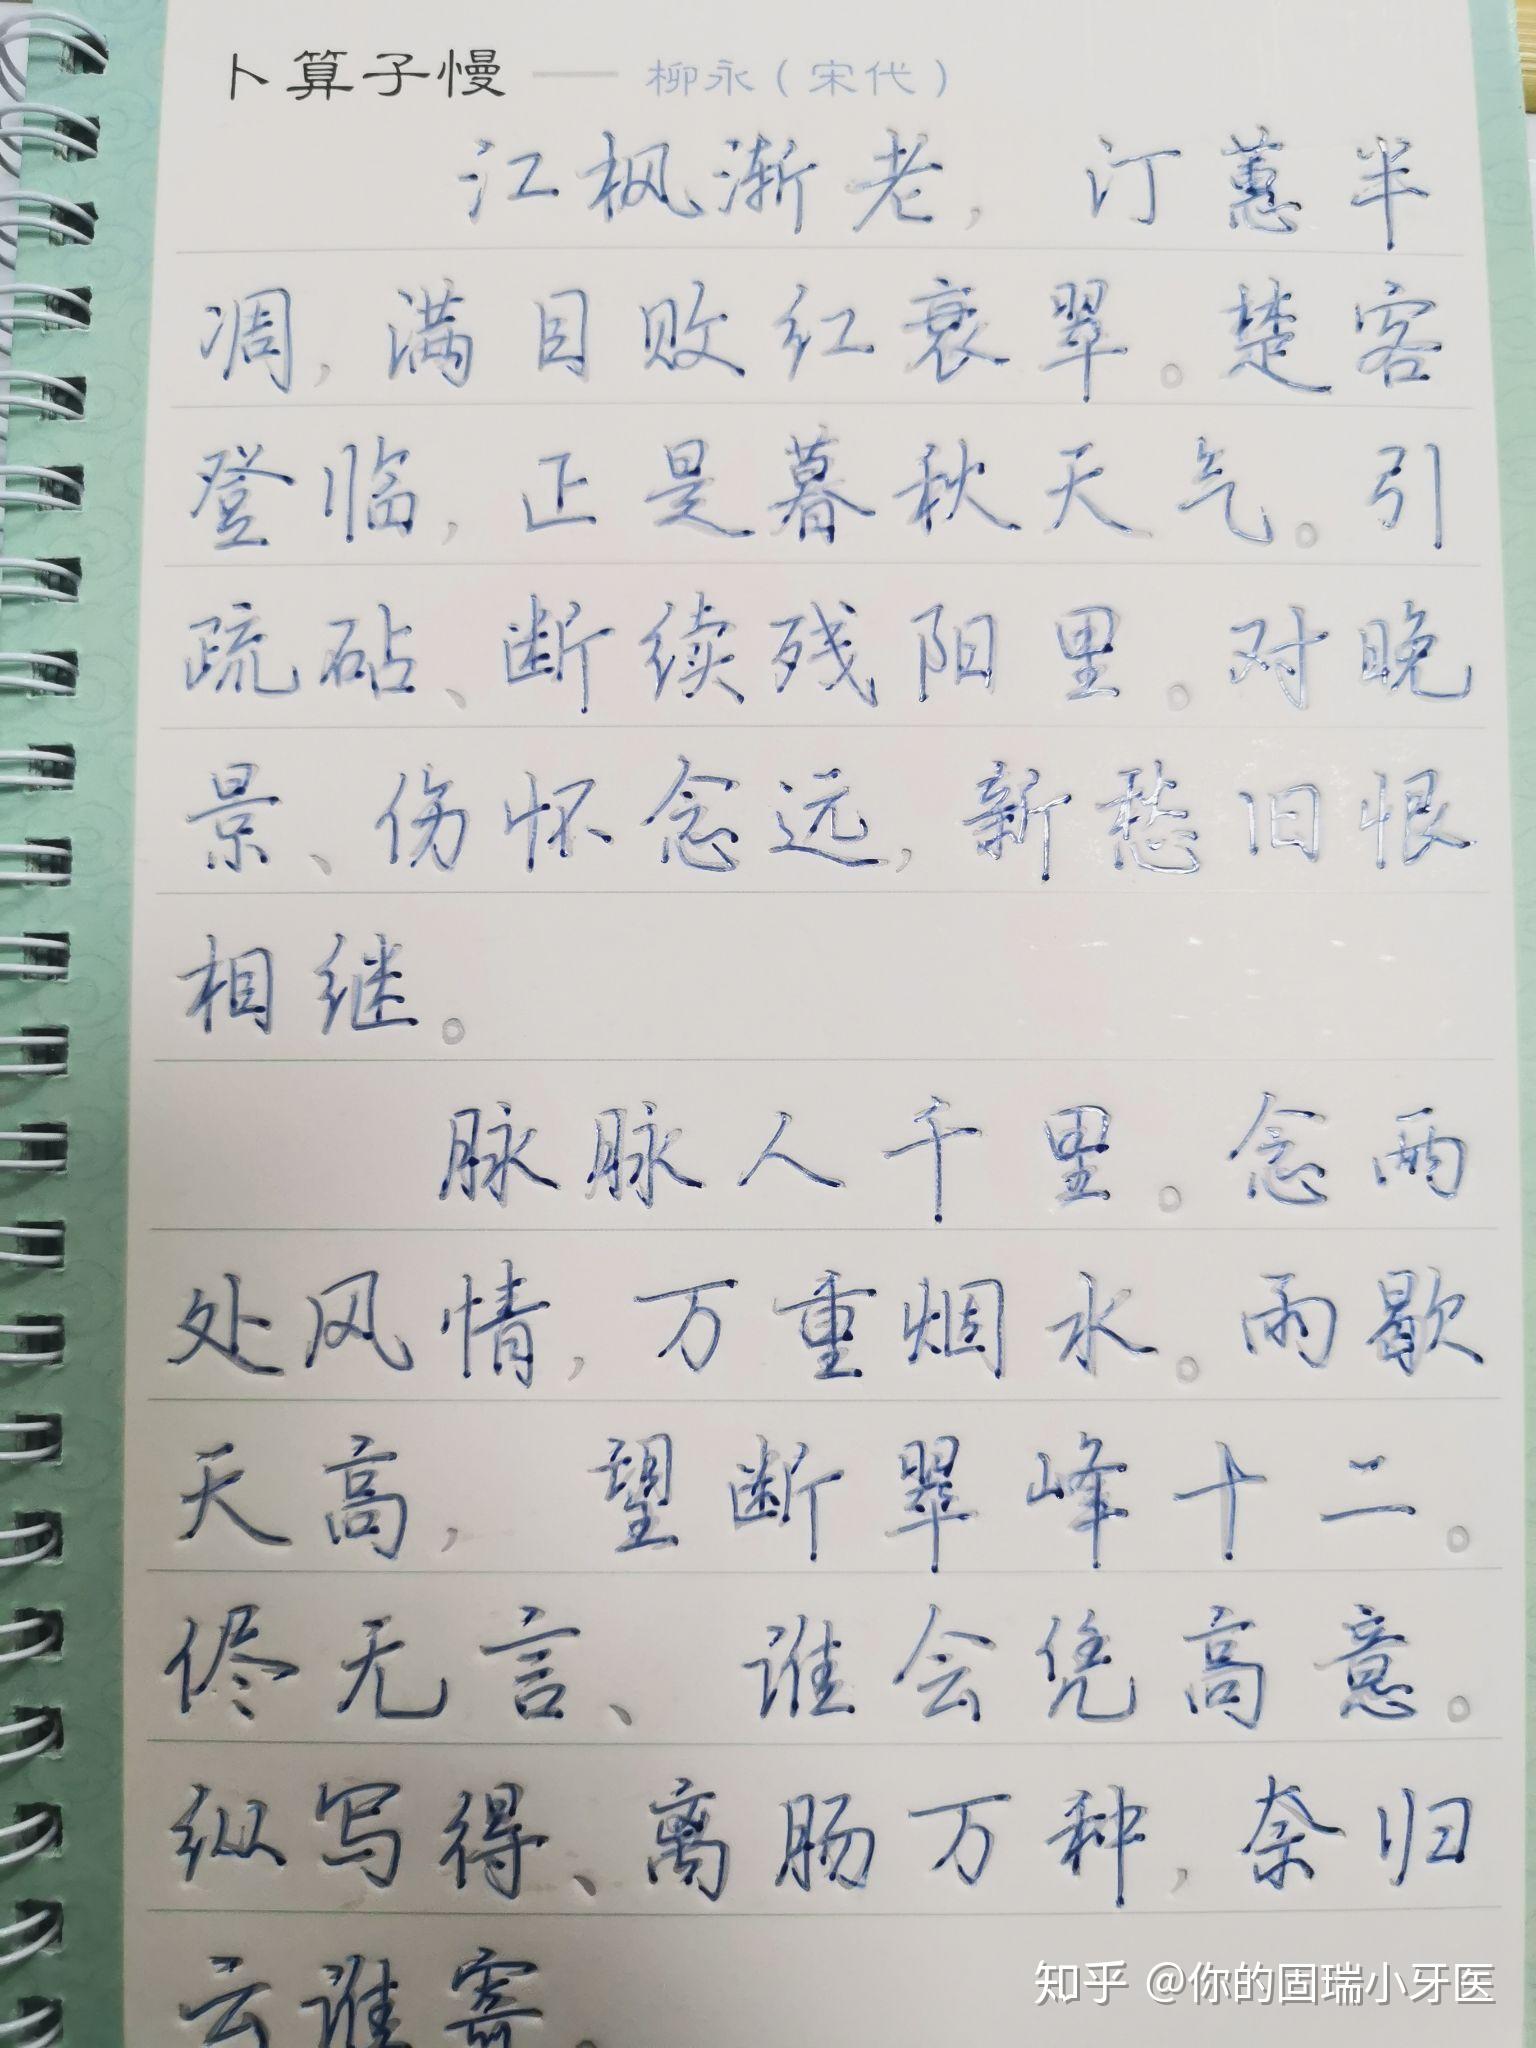 卜算子慢 —— 柳永(宋代)
江枫渐老,汀蕙半
凋,满目败红衰翠。楚客
登临,正是暮秋天气。引
疏砧、断续残阳里。对晚
景、伤怀念远,新愁旧恨
相继。
脉脉人千里。念两
处风情,万重烟水。雨歇
天高,望断翠峰十二。
侭无言、谁会凭高意。
纵写得、离肠万种,奈归
云谁寄。
知乎 @你的固瑞小牙医